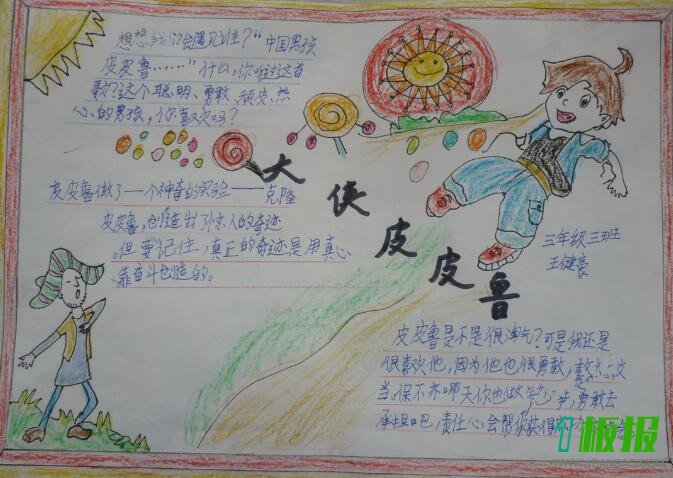 想想我们会遇见谁？“中国男孩
皮皮鲁……”什么，你听过这首
歌？这个聪明、勇敢、顽皮、热
心的男孩，你喜欢吗？
大侠皮皮鲁
皮皮鲁做了一个神奇的实验——克隆
皮皮鲁，创造出了惊人的奇迹
但要记住，真正的奇迹是用真心
靠奋斗创造的。
三年级三班
王健豪
皮皮鲁是不是很淘气？可是我还是
很喜欢他，因为他也很勇敢，敢
当，保不齐哪天你也做 勇敢去
承担吧，责任心会帮你获得
板报